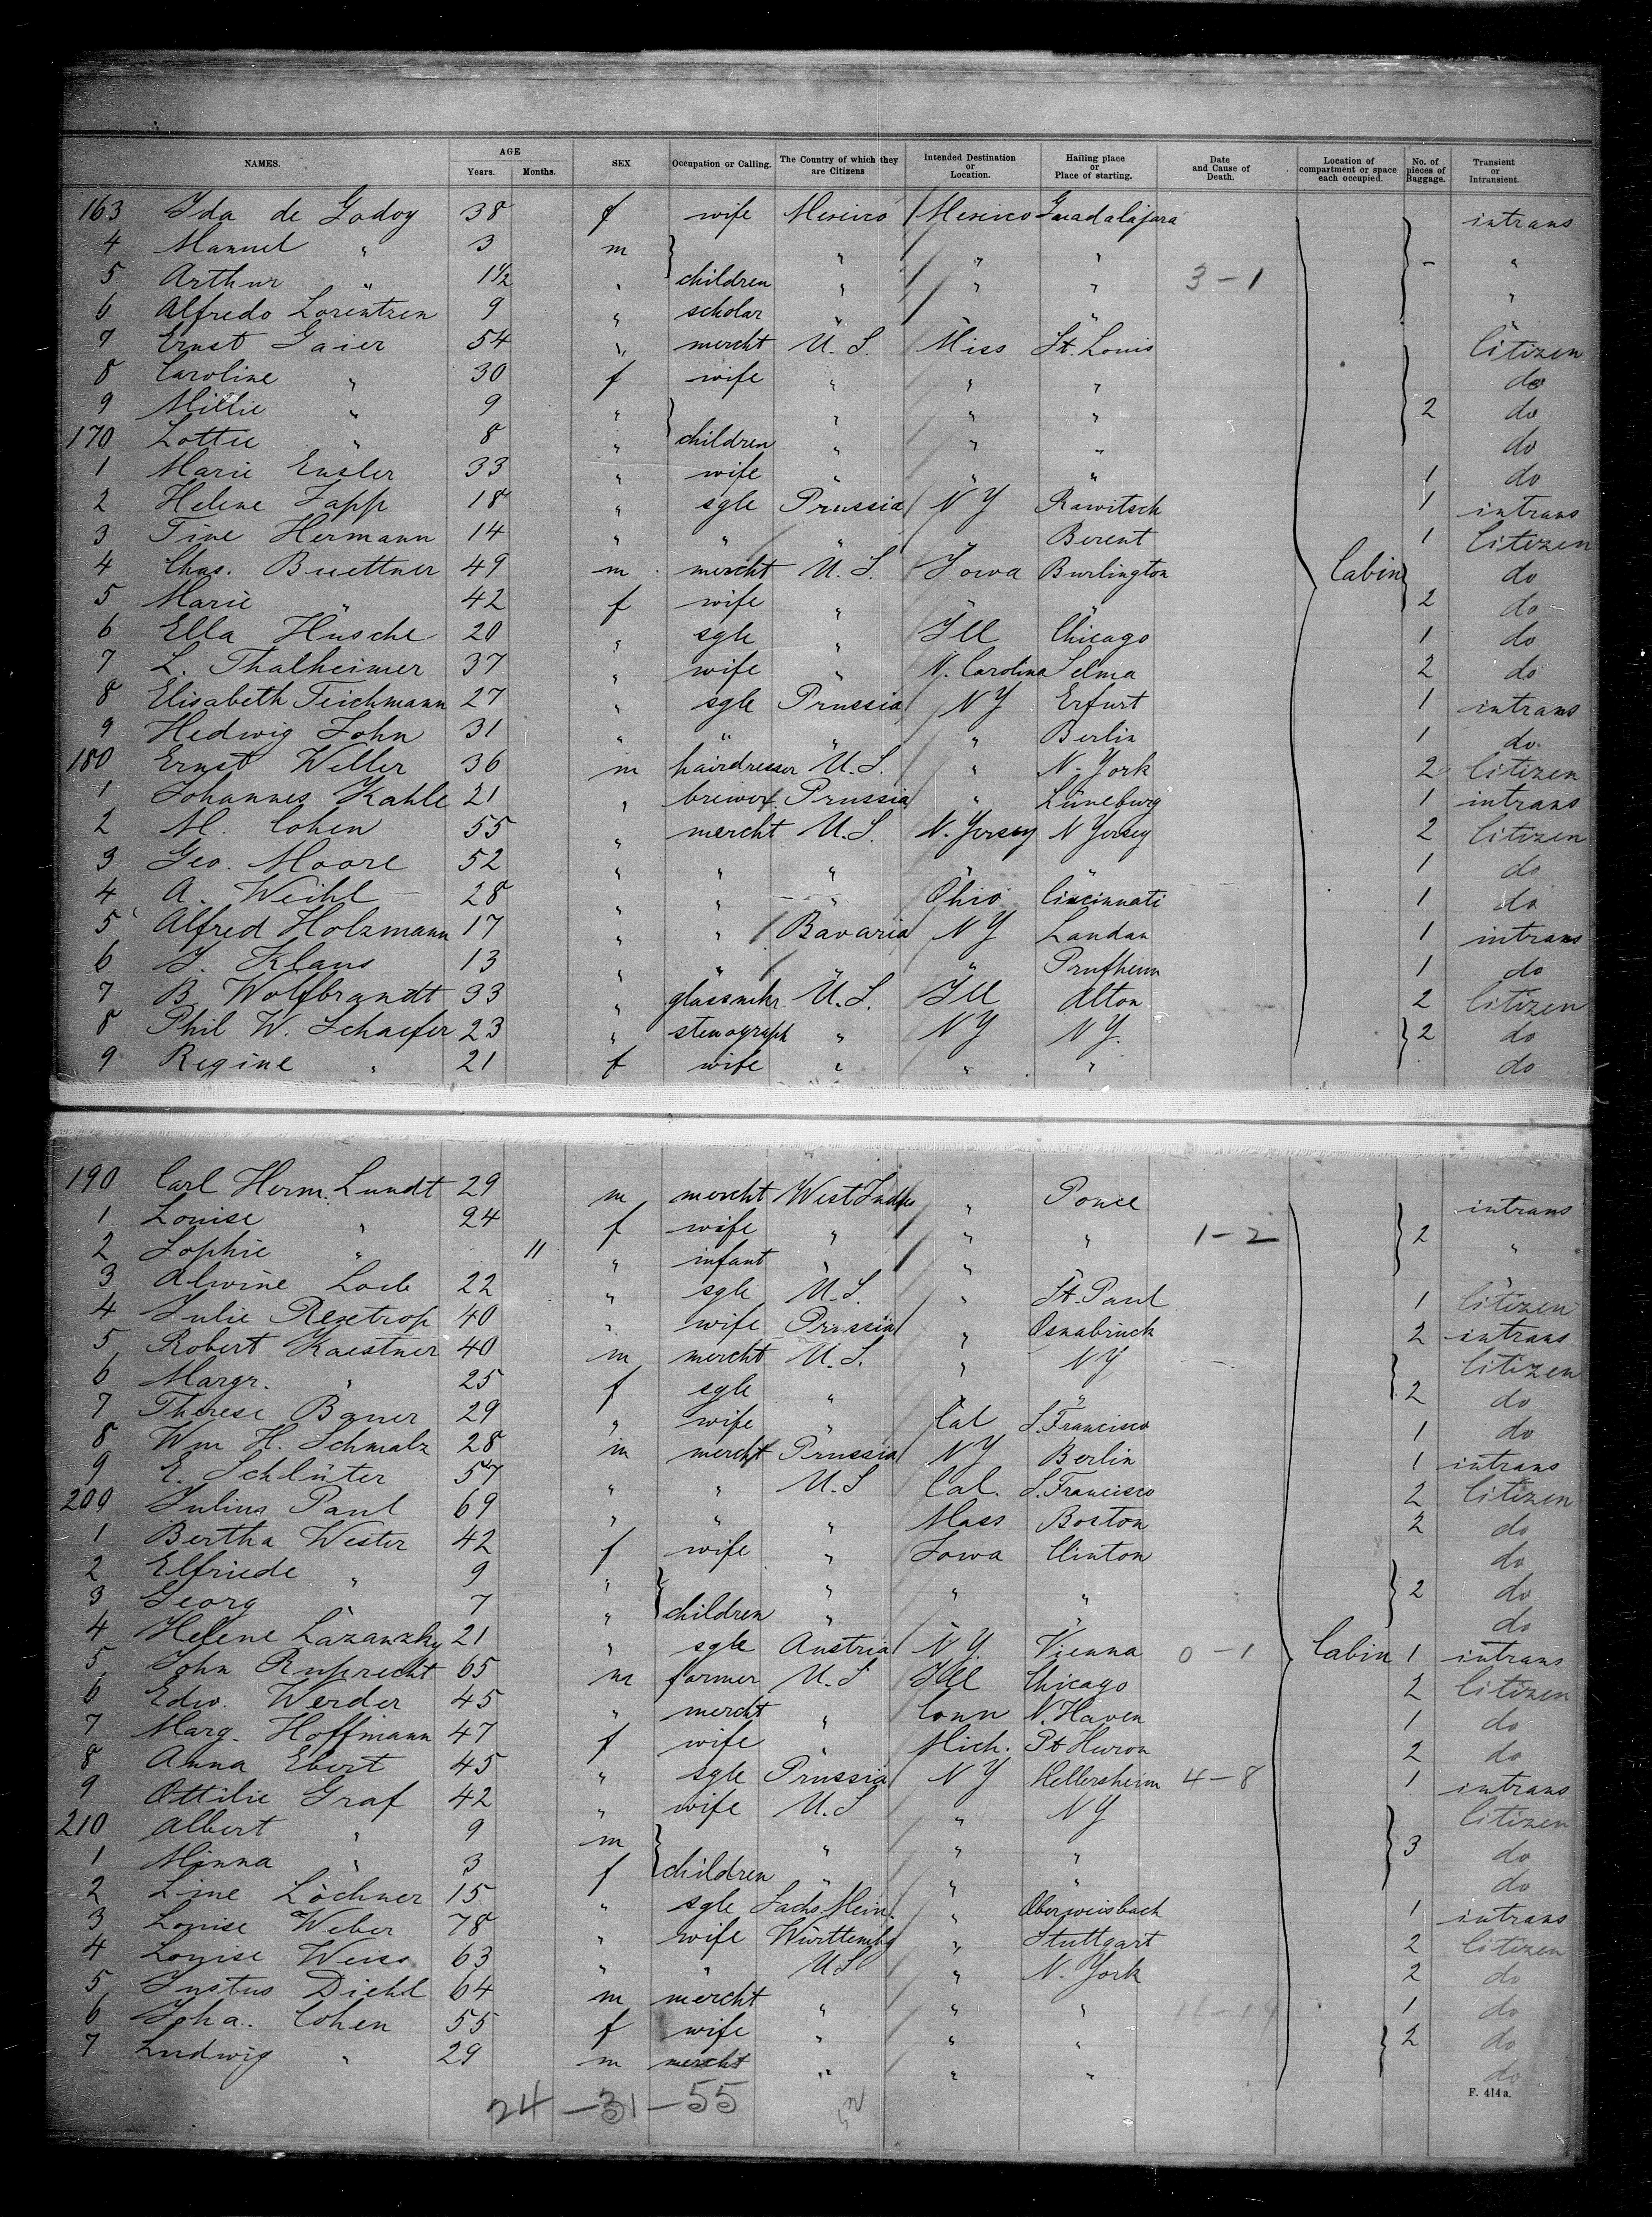 NAMES. AGE Years. Months. SEX Occupation or Calling. The Country of which they are Citizens Intended Destination or Location. Hailing place or Place of starting. Date and Cause of Death. Location of compartment or space each occupied. No. of pieces of Baggage. Transient or Intransient.
163 Ida de Godoy 38 f wife Mexico Mexico Guadalajara intrans
4 Manuel " 3 m " " " - "
5 Arthur " 1 1/2 " children " " " 3-1 "
6 Alfredo Lorentzen 9 " scholar " " " "
7 Ernst Gaier 54 " mercht U.S. Miss St. Louis Citizen
8 Caroline " 30 f wife " " " do
9 Millie " 9 " " " " 2 do
170 Lottie " 8 " children " " " do
1 Marie Ensler 33 " wife " " " 1 do
2 Helene Zapp 18 " sgle Prussia N Y Rawitsch 1 intrans
3 Tine Hermann 14 " " " " Berent 1 Citizen
4 Chas. Buettner 49 m mercht U.S. Iowa Burlington Cabin do
5 Marie " 42 f wife " " " 2 do
6 Ella Husche 20 " sgle " Ill Chicago 1 do
7 L. Thalheimer 37 " wife " N. Carolina Selma 2 do
8 Elisabeth Teichmann 27 " sgle Prussia N Y Erfurt 1 intrans
9 Hedwig John 31 " " " " Berlin 1 do
180 Ernst Weller 36 m hairdresser U.S. " N. York 2 Citizen
1 Johannes Kahle 21 " brewer Prussia " Lüneburg 1 intrans
2 M. Cohen 55 " mercht U.S. N. Yersey N Yersey 2 Citizen
3 Geo. Moore 52 " " " " " 1 do
4 A. Weihl 28 " " " Ohio Cincinnati 1 do
5 Alfred Holzmann 17 " " Bavaria N Y Landau 1 intrans
6 J. Klaus 13 " " " " 1 do
7 B. Wolfbrandt 33 " U.S. Ill Alton 2 Citizen
8 Phil W. Schaefer 23 " stenograph " N Y N Y. 2 do
9 Regine " 21 f wife " " " do
190 Carl Herm. Lundt 29 m mercht West Indies " Ponce intrans
1 Louise " 24 f wife " " " 1-2 2 "
2 Sophie " 11 " infant " " " "
3 Alwine Loeb 22 " sgle U.S. " St. Paul 1 Citizen
4 Julie 40 " wife Prussia " Osnabrück 2 intrans
5 Robert Kaestner 40 m mercht U.S. " N Y Citizen
6 Margr. " 25 f sgle " " " 2 do
7 Therese Bauer 29 " wife " Cal S. Francisco 1 do
8 Wm H. Schmalz 28 m mercht Prussia N Y Berlin 1 intrans
9 E. Schlüter 57 " " U.S Cal. S. Francisco 2 Citizen
200 Julius Paul 69 " " " Mass Boston 2 do
1 Bertha Wester 42 f wife " Iowa Clinton do
2 Elfriede " 9 " " " " 2 do
3 Georg " 7 " children " " " do
4 Helene Lazanzky 21 " sgle Austria N Y. Vienna 0-1 Cabin 1 intrans
5 John Ruprecht 65 m farmer U.S Ill Chicago 2 Citizen
6 Edw. Werder 45 " mercht " Conn N. Haven 1 do
7 Marg. Hoffmann 47 f wife " Mich. Pt Huron 2 do
8 Anna Ebert 45 " sgle Prussia N Y Hellersheim 4-8 1 intrans
9 Ottilie Graf 42 " wife U.S " N Y Citizen
210 Albert " 9 m " " " 3 do
1 Minna " 3 f children " " " do
2 Line Löchner 15 " sgle Sachs Mein. " Oberweisbach 1 intrans
3 Louise Weber 78 " wife Württembg " Stuttgart 2 Citizen
4 Louise Weiss 63 " " U S " N. York 2 do
5 Justus Diehl 64 m mercht " " " 1 do
6 Joha. Cohen 55 f wife " " " 2 do
7 Ludwig " 29 m mercht " " " do
24-31-55
F. 414 a.